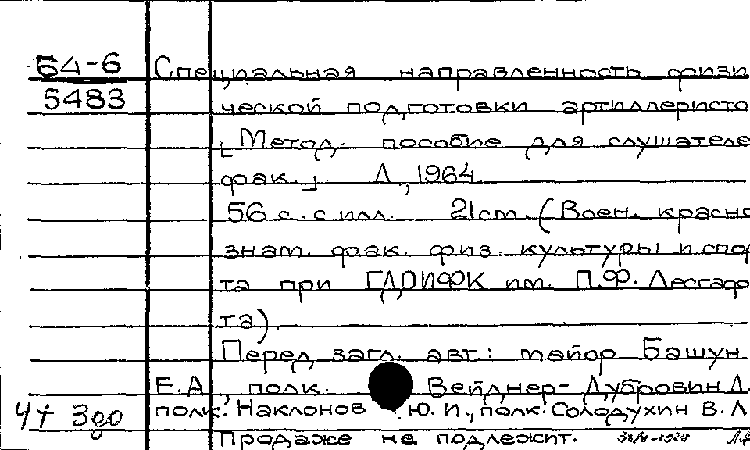 Б4-6 Специальная направленность физи
5483 ческой подготовки артиллеристо
[Метод. пособие для слушателе
фак.] Л., 1964
56 с. с илл. 21 cm. (Воен. красно
знам. фак. физ. культуры и спор
та при ГДОИФК им. П.Ф. Лесгаф
та).
Перед загл. авт.: майор Башун
Е.А., полк. Вейднер-Дубровин Л.
полк. Наклонов Ю. И., полк. Солодухин В. А
Продаже не подлежит.